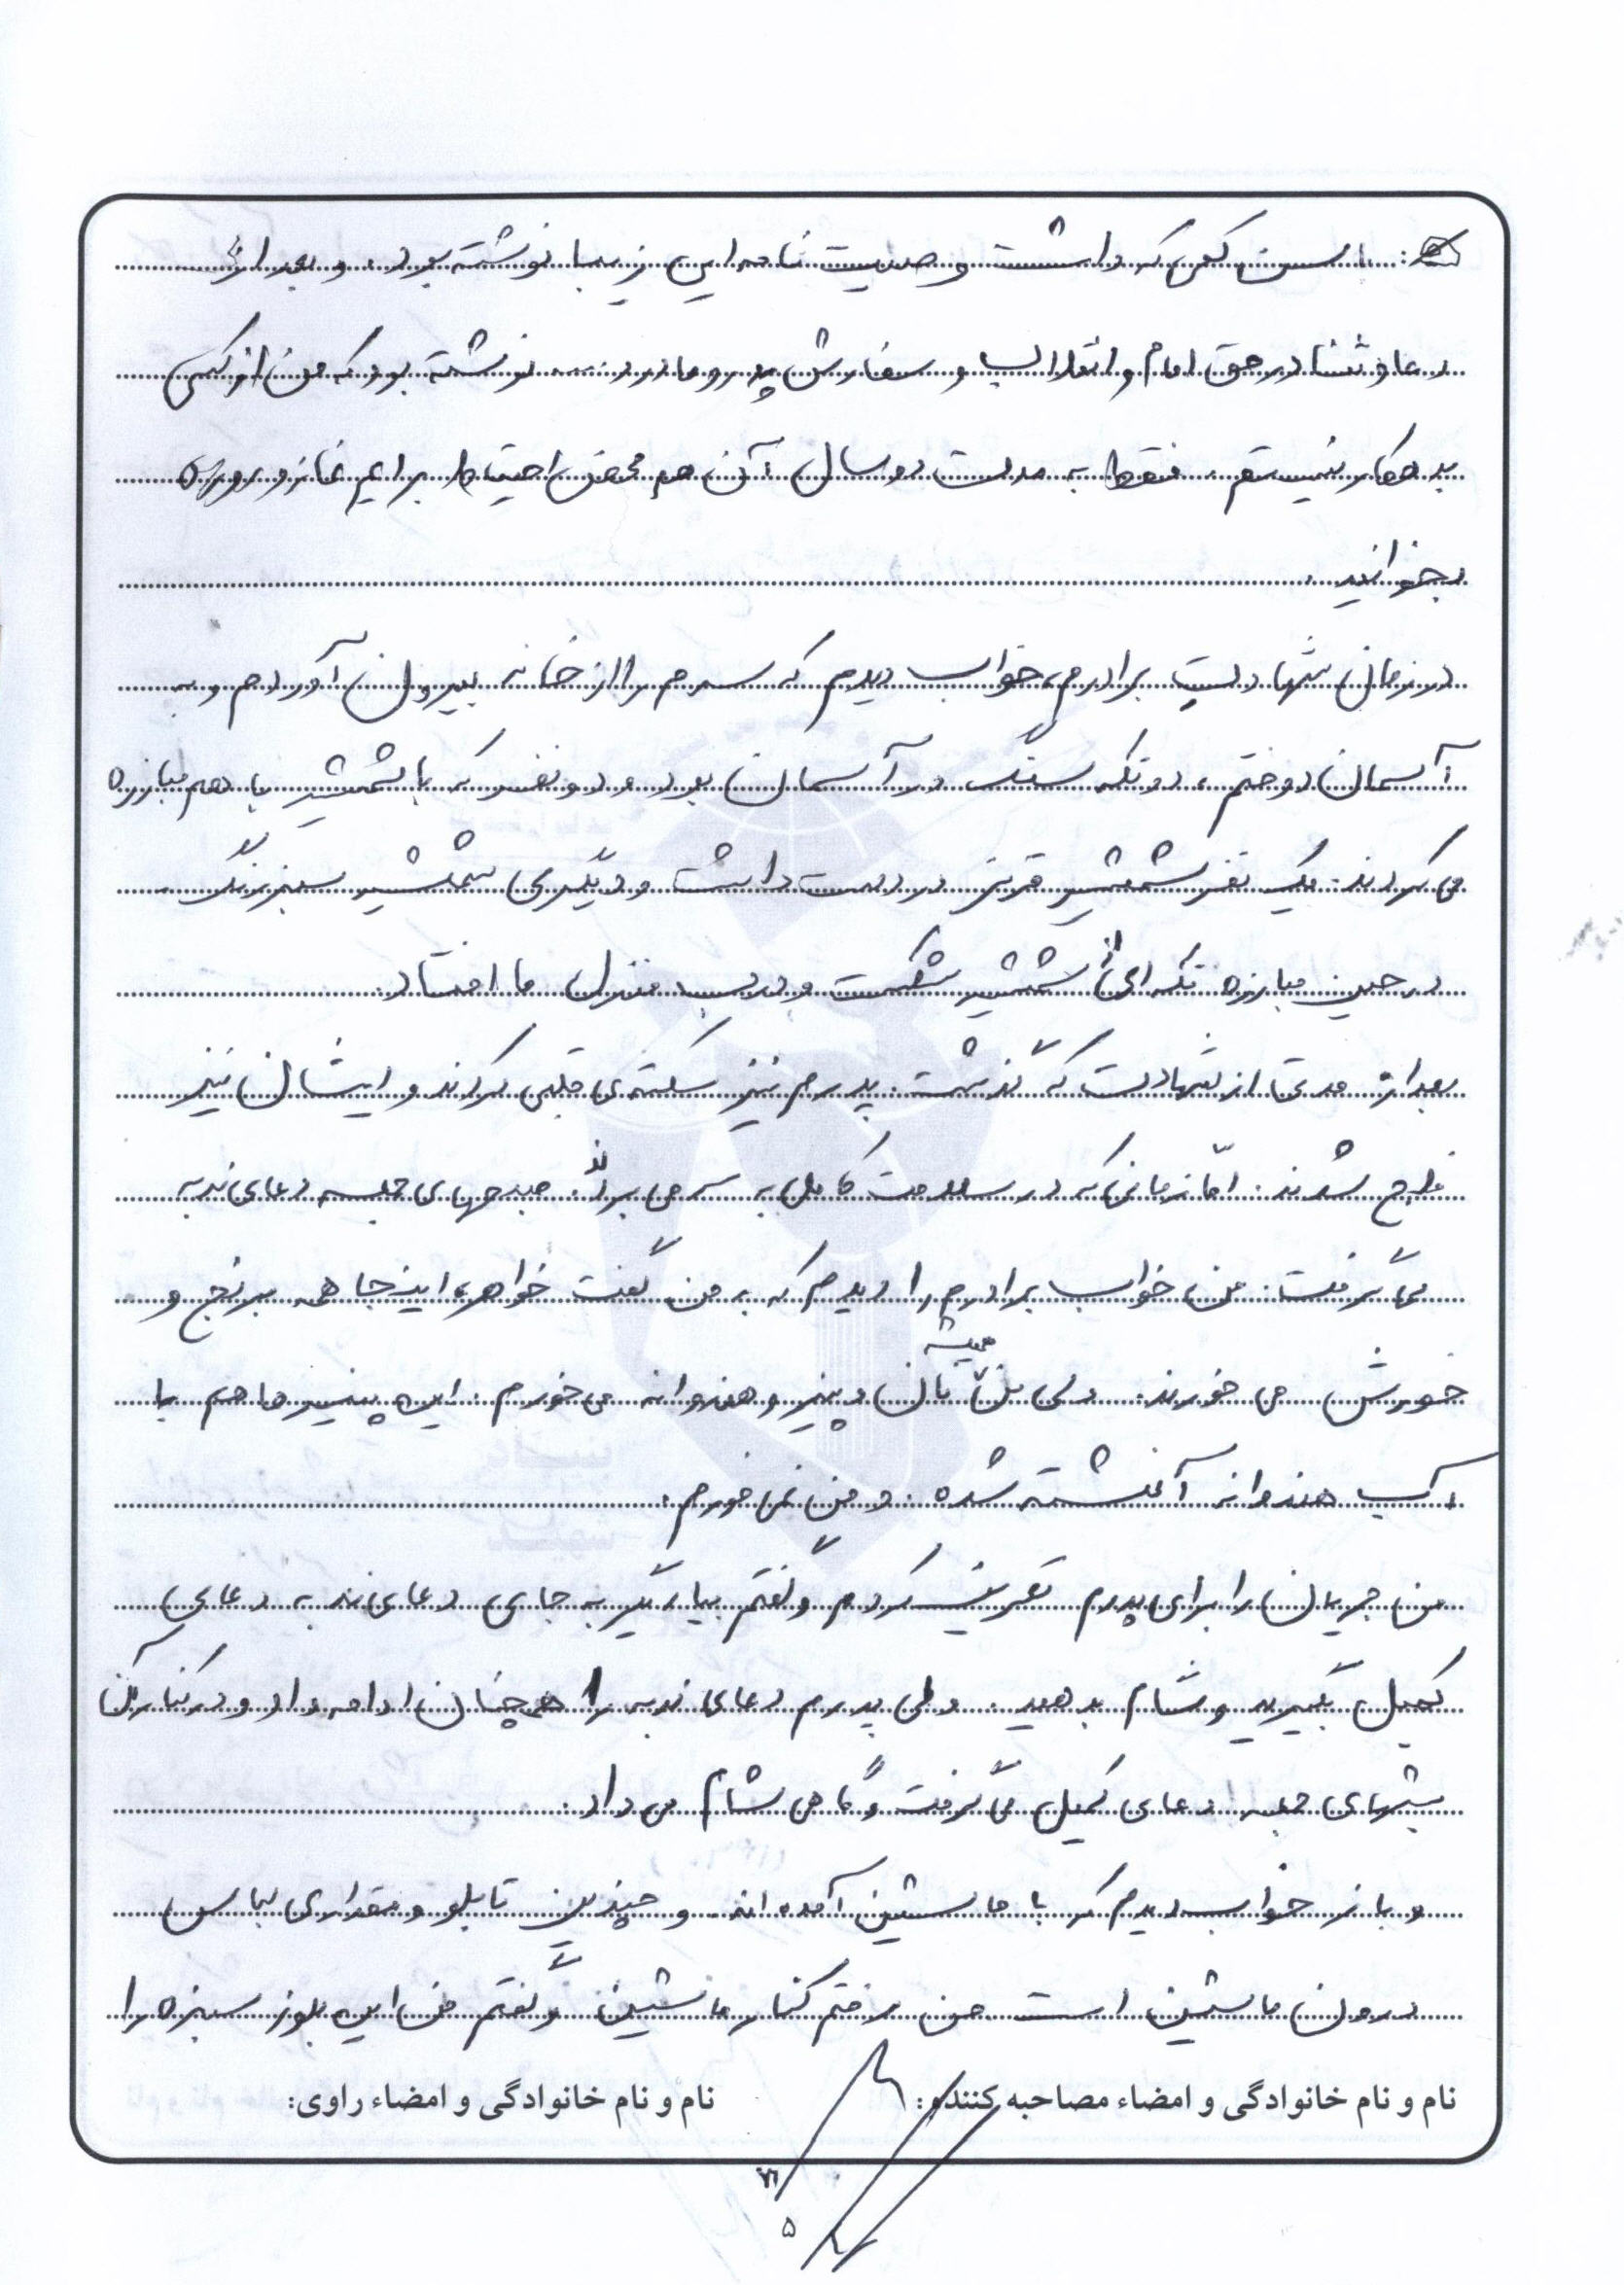 با سن کمی که داشت وصیت نامه ایی زیبا نوشته بود. و بعد از
دعا و ثنا در حق امام و انقلاب و سفارش پدر و مادر و ... نوشته بود که من از کسی
بدهکار نیستم. فقط به مدت دو سال آن هم محض احتیاط برایم نماز و روزه
بخوانید.
در زمان شهادت برادرم، خواب دیدم که سرم را از خانه بیرون آوردم و به
آسمان دوختم، دو تکه سنگ در آسمان بود و دو نفر که با شمشیر با هم مبارزه
می کردند. یک نفر شمشیر قرمز در دست داشت و دیگری شمشیر سبز رنگ.
در حین مبارزه تکه ای از شمشیر شکست و درب منزل ما افتاد.
بعد از مدتی از شهادت که گذشت. پدرم نیز سکته ی قلبی کردند و ایشان نیز
فلج شدند. امّا زمانی که در سلامت کامل به سر می برد. صبحهای جمعه دعای ندبه
می گرفت. من خواب برادرم را دیدم که به من گفت خواهر، اینجا همه برنج و
خورش می خورند. ولی من همیشه نان و پنیر و هندوانه می خورم. این پنیرها هم با
آب هندوانه آغشته شده. و من نمی خورم.
من جریان را برای پدرم تعریف کردم و گفتم بیا دیگر به جای دعای ندبه دعای
کمیل بگیرید و شام بدهید. ولی پدرم دعای ندبه را همچنان ادامه داد و در کنار آن
شبهای جمعه دعای کمیل می گرفت و گاهی شام می داد.
و باز خواب دیدم که با ماشین آمده اند. و چندین تابلو و مقداری لباس
درون ماشین است من رفتم کنار ماشین و گفتم من این بلوز سبزه را
نام و نام خانوادگی و امضاء مصاحبه کننده: نام و نام خانوادگی و امضاء راوی:
۵